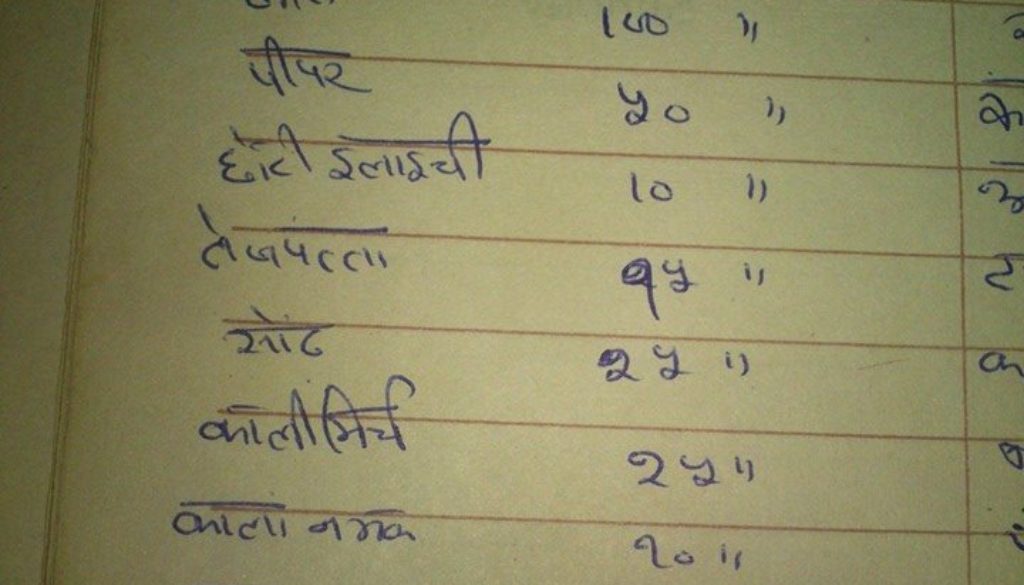 100 "
पीपर ५० "
छोटी इलाइची 10 "
तेजपत्ता १५ "
सोंठ २५ "
काली मिर्च २५ "
काला नमक १० "